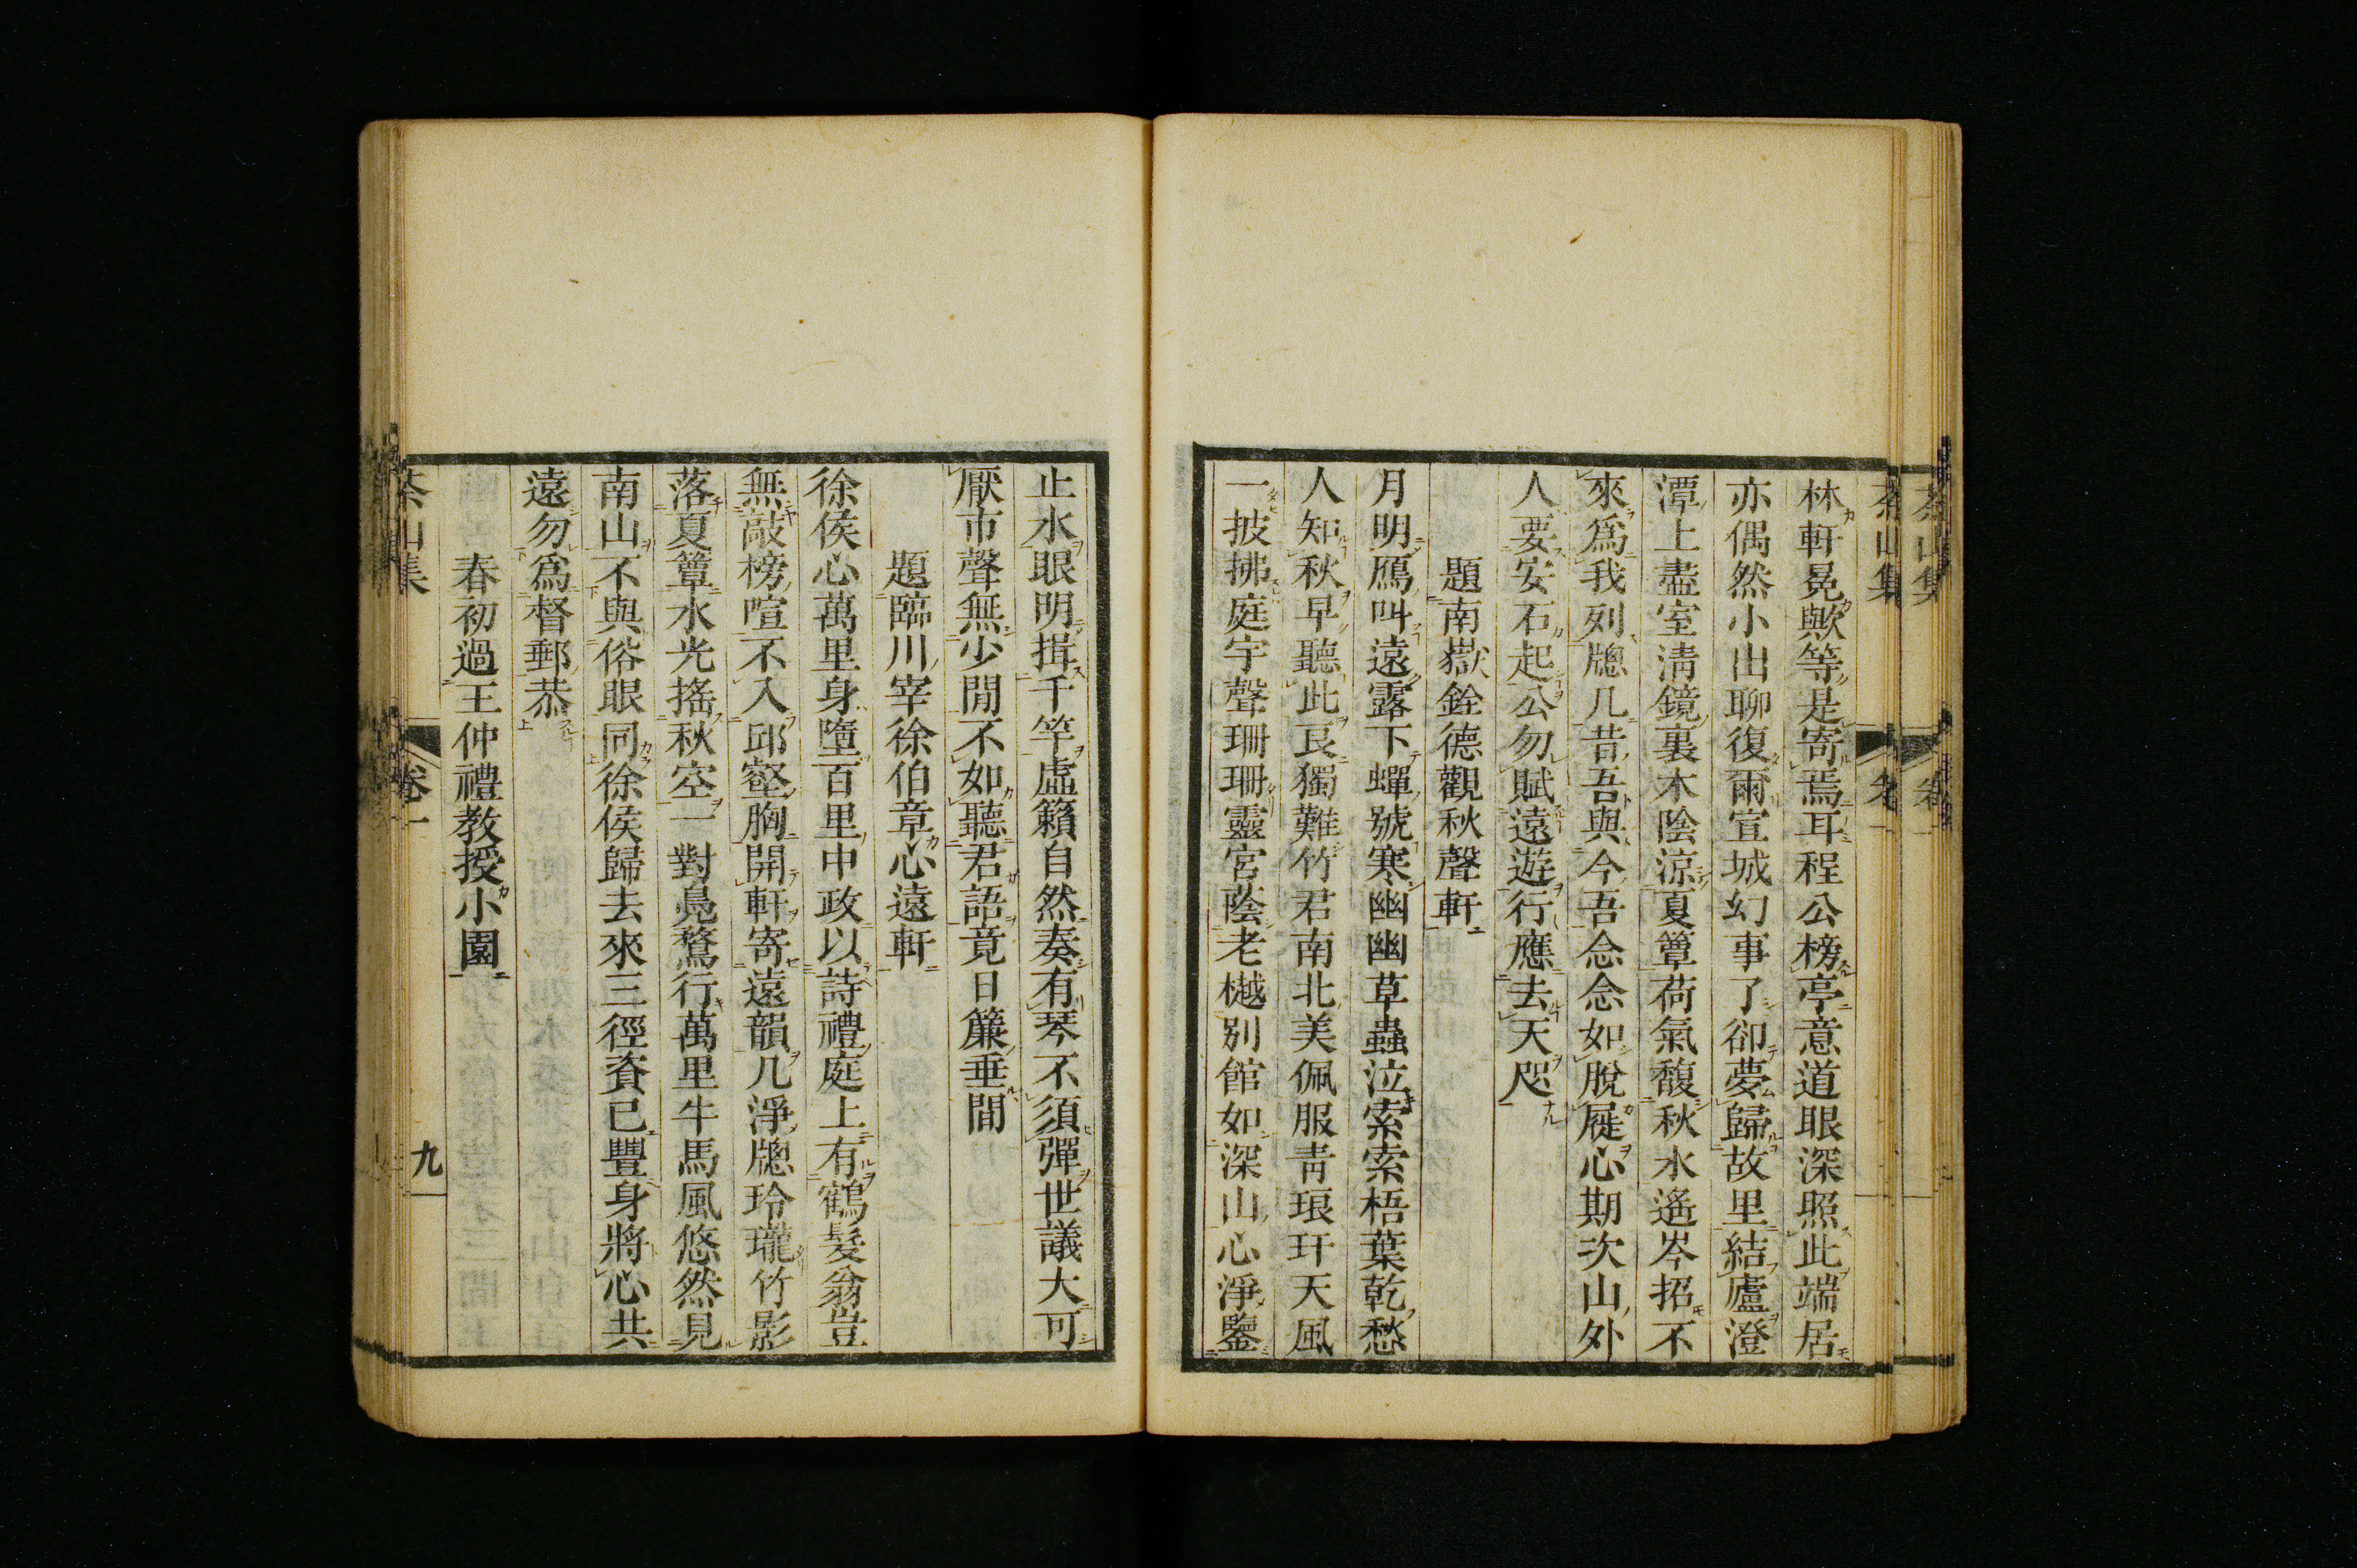 茶山集
林軒冕歟等是寄焉耳程公榜亭意道眼深照此端居
亦偶然小出聊復爾宣城幻事了卻夢歸故里結廬澄
潭上盡室淸鏡裏木陰涼夏簟荷氣馥秋水遙岑招不
來爲我列牕几昔吾與今吾念念如脫屣心期次山外
人要安石起公勿賦遠遊行應去天咫
題南嶽銓德觀秋聲軒
月明鴈叫遠露下蟬號寒幽幽草蟲泣索索梧葉乾愁
人知秋早聽此良獨難竹君南北美佩服靑琅玕天風
一披拂庭宇聲珊珊靈宮蔭老樾別館如深山心淨鑒
止水眼明揖千竿虛籟自然奏有琴不須彈世議大可
厭市聲無少閒不如聽君語竟日簾垂間
題臨川宰徐伯章心遠軒
徐侯心萬里身墮百里中政以詩禮庭上有鶴髮翁豈
無敲榜喧不入邱壑胸開軒寄遠韻几淨牕玲瓏竹影
落夏簟水光搖秋空一對鳧鶩行萬里牛馬風悠然見
南山不與俗眼同徐侯歸去來三徑資已豐身將心共
遠勿爲督郵恭
春初過王仲禮教授小園
茶山集
卷一
九